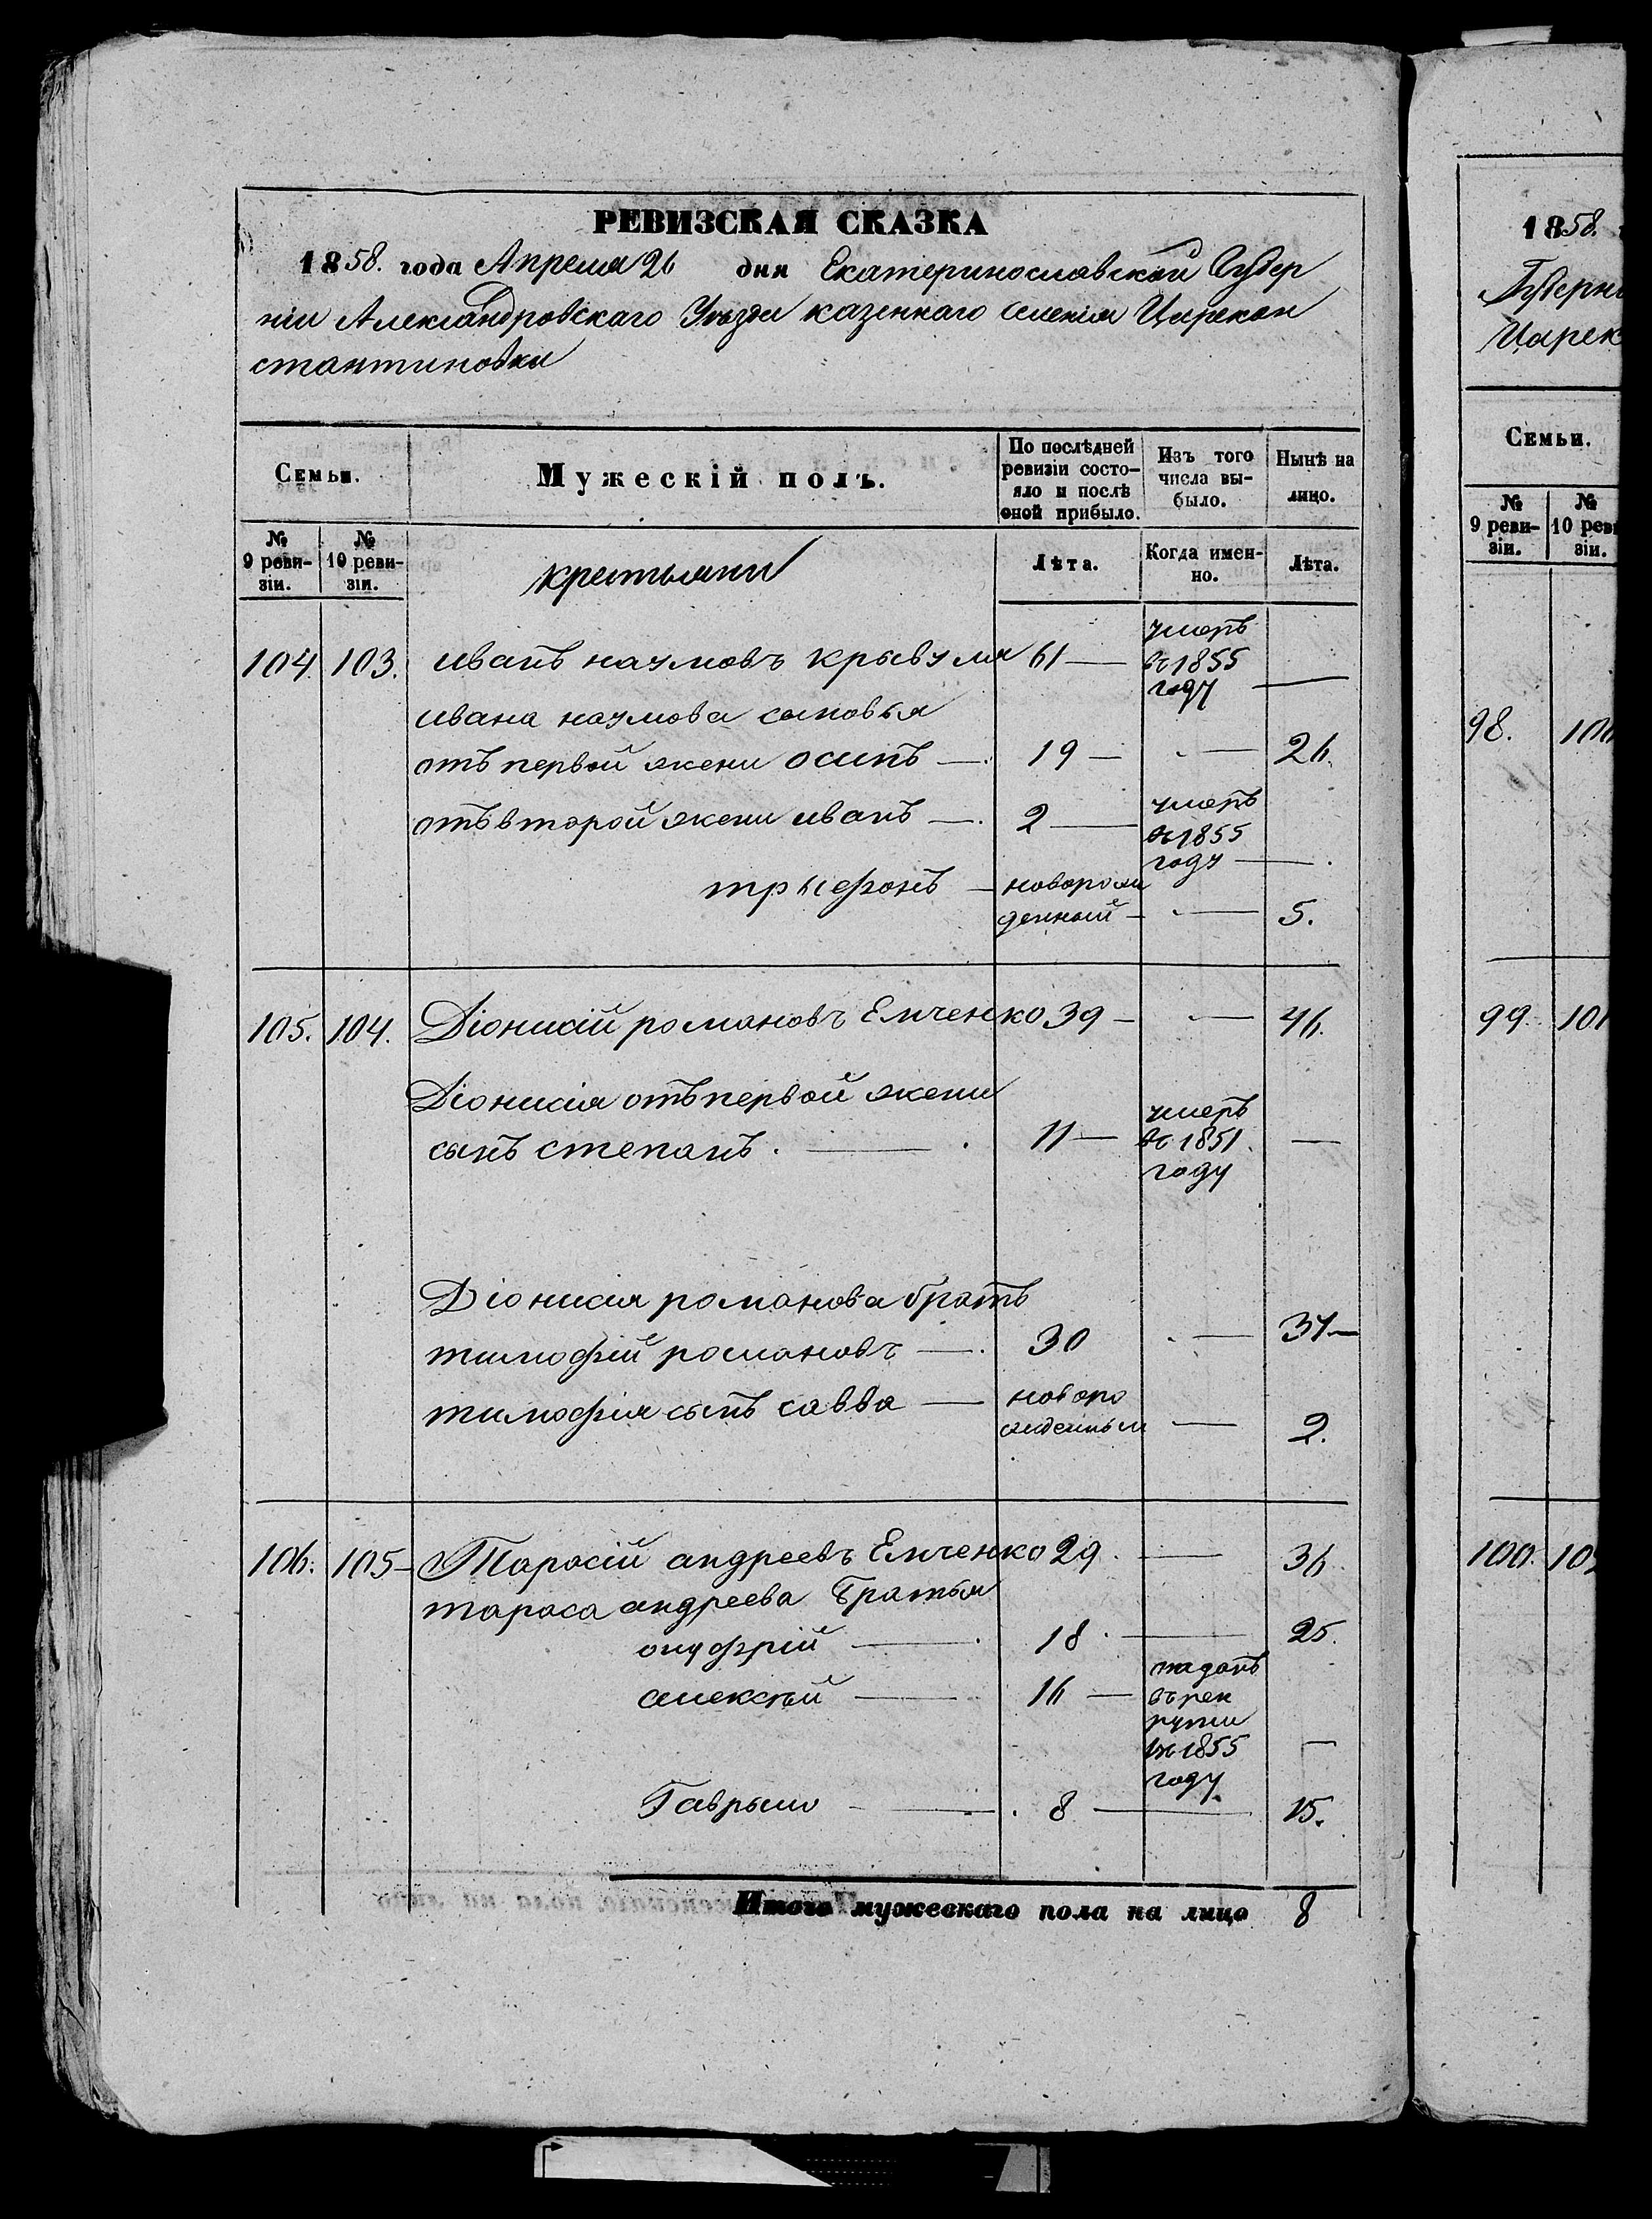 РЕВИЗСКАЯ СКАЗКА
1858. года Апреля 26 дня Екатеринославской Губер
ніи Александровскаго Уѣзда казеннаго селенія Царекон
стантиновки
Семьи.
Мужескій полъ.
По послѣдней ревизіи состо-
яло и послѣ оной прибыло.
Изъ того числа вы-
было.
Нынѣ на лицо.
№ 9 реви-
зіи.
№ 10 реви-
зіи.
крестьяни
Лѣта.
Когда имен-
но.
Лѣта.
104. 103. иванъ наумовъ крывуля 61 — умеръ
въ 1855
году —
ивана наумова сыновья
отъ первой жени осипъ — 19 — — 26.
отъ второй жени иванъ — 2 — умеръ
въ 1855
году —
трыфонъ — новорож
денный — — 5.
105. 104. Діонисій романовъ Емченко 39 — — 46.
Діонисія отъ первой жени
сынъ степанъ. — 11 — умеръ
въ 1851
году —
Діонисія романова братъ
тимофій романовъ — 30 — 37 —
тимофія сынъ савва — новоро
жденный — 2.
106. 105 — Тарасій андреевъ Емченко 29. — 36
тараса андреева братья
онуфрій — 18 — 25.
алексѣй — 16 — отданъ
въ рек
рути
въ 1855
году —
Гаврыло — 8 — 15.
Итого мужескаго пола на лицо 8
1858.
Губерн
Царек
Семьи.
№ 9 реви-
зіи.
№ 10 реви
зіи.
98. 100
99. 101
100. 102